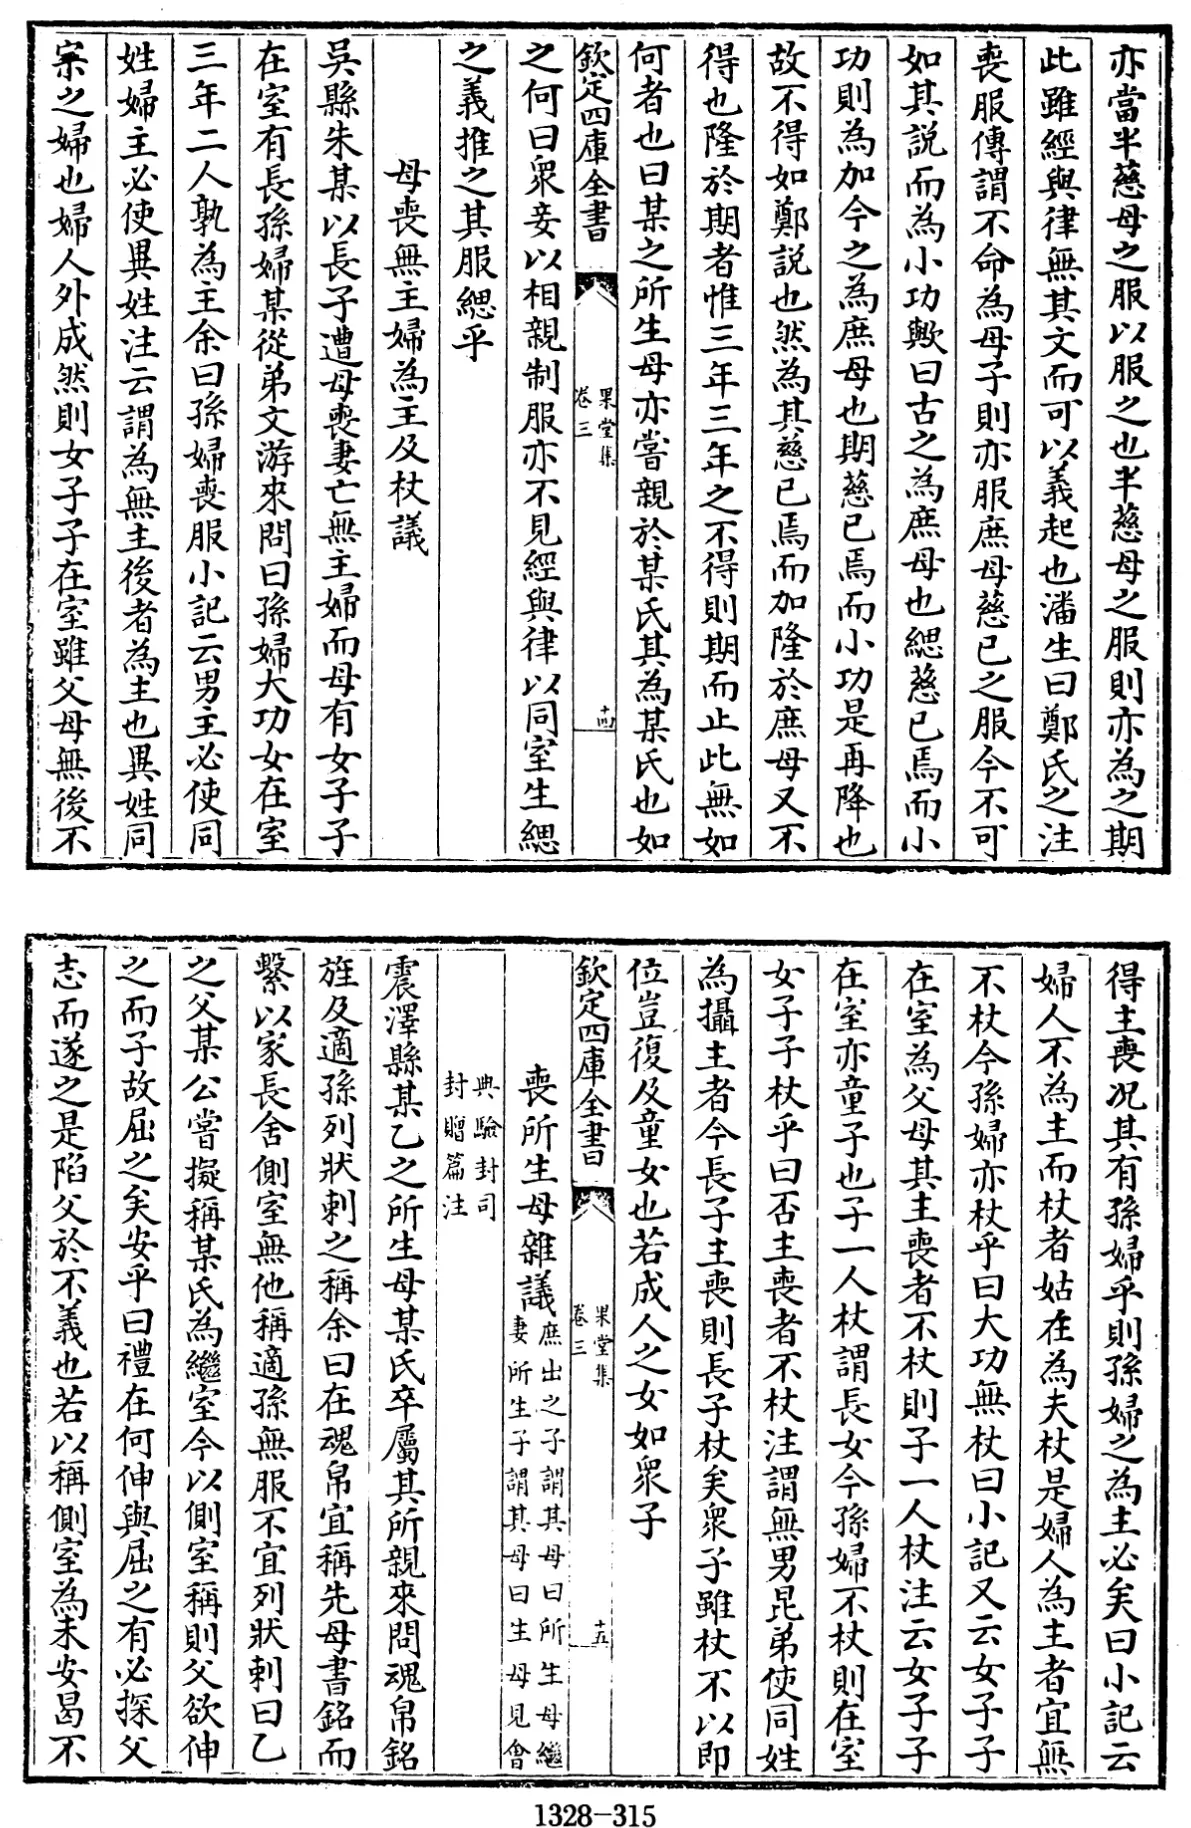 亦當半慈母之服以服之也半慈母之服則亦為之期
此雖經與律無其文而可以義起也潘生曰鄭氏之注
喪服傳謂不命為母子則亦服庶母慈已之服今不可
如其説而為小功歟曰古之為庶母也緦慈已焉而小
功則為加今之為庶母也期慈已焉而小功是再降也
故不得如鄭説也然為其慈已焉而加隆於庶母又不
得也隆於期者惟三年三年之不得則期而止此無如
何者也曰某之所生母亦嘗親於某氏其為某氏也如
欽定四庫全書
果堂集
卷三
十四
之何曰衆妾以相親制服亦不見經與律以同室生緦
之義推之其服緦乎
母喪無主婦為主及杖議
吳縣朱某以長子遭母喪妻亡無主婦而母有女子子
在室有長孫婦某從弟文游來問曰孫婦大功女在室
三年二人孰為主余曰孫婦喪服小記云男主必使同
姓婦主必使異姓注云謂為無主後者為主也異姓同
宗之婦也婦人外成然則女子子在室雖父母無後不
得主喪况其有孫婦乎則孫婦之為主必矣曰小記云
婦人不為主而杖者姑在為夫杖是婦人為主者宜無
不杖今孫婦亦杖乎曰大功無杖曰小記又云女子子
在室為父母其主喪者不杖則子一人杖注云女子子
在室亦童子也子一人杖謂長女今孫婦不杖則在室
女子子杖乎曰否主喪者不杖注謂無男昆弟使同姓
為攝主者今長子主喪則長子杖矣衆子雖杖不以即
位豈復及童女也若成人之女如衆子
欽定四庫全書
果堂集
卷三
十五
喪所生母雜議庶出之子謂其母曰所生母繼
妻所生子謂其母曰生母見會
典驗封司
封贈篇注
震澤縣某乙之所生母某氏卒屬其所親來問魂帛銘
旌及適孫列狀刺之稱余曰在魂帛宜稱先母書銘而
繫以家長舍側室無他稱適孫無服不宜列狀刺曰乙
之父某公嘗擬稱某氏為繼室今以側室稱則父欲伸
之而子故屈之矣安乎曰禮在何伸與屈之有必探父
志而遂之是陷父於不義也若以稱側室為未安曷不
1328-315